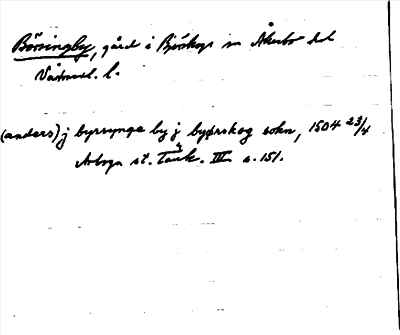 Börsingby, gård i Björskogs sn Åkerbo hd
Västml. l.
(anders) j byrsynge by j byørskog sokn, 1504 23/4
Arboga st. Tänk. III s. 151.